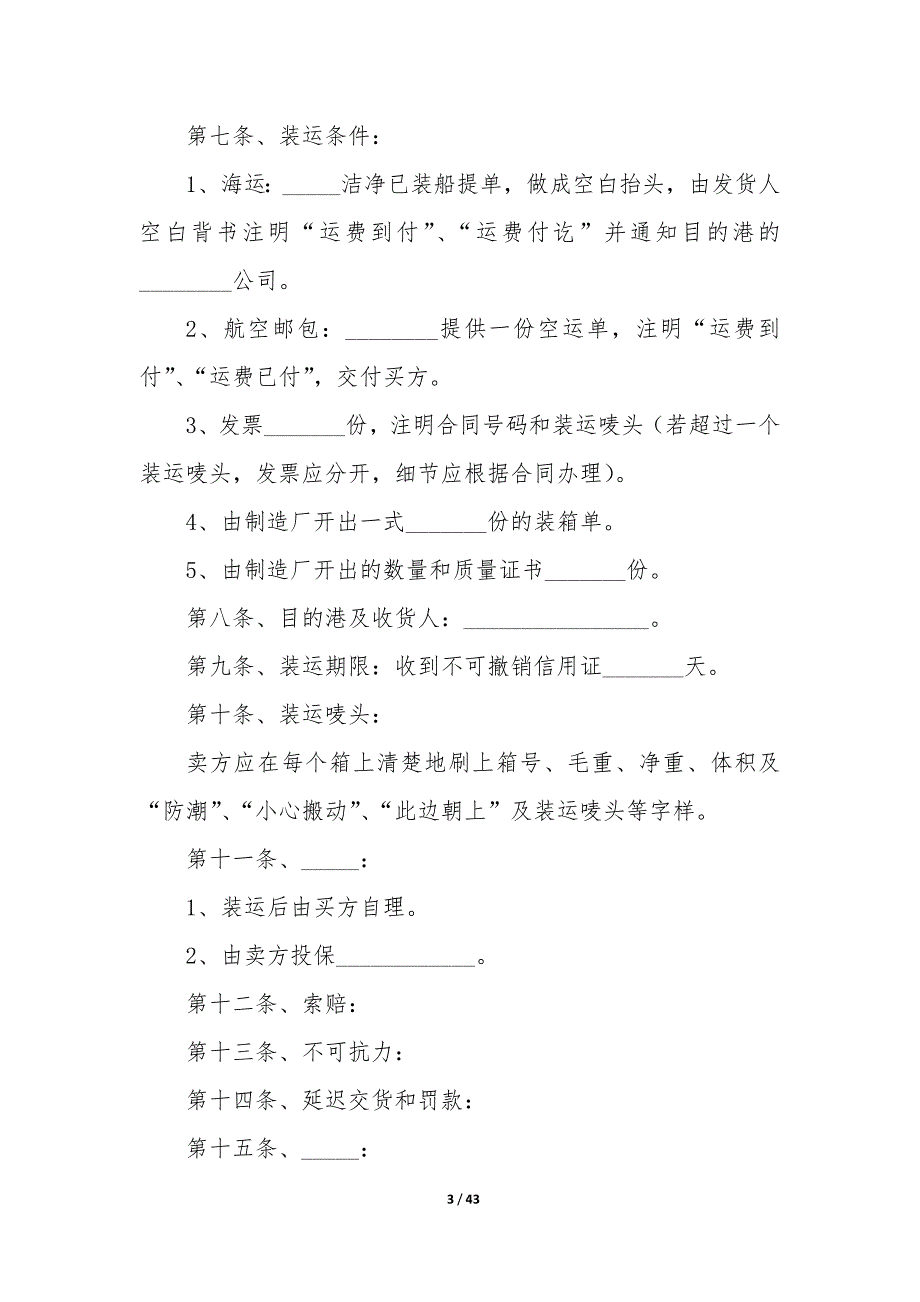 第七条、装运条件：
1、海运：_____洁净已装船提单，做成空白抬头，由发货人
空白背书注明“运费到付”、“运费付讫”并通知目的港的
________公司。
2、航空邮包：________提供一份空运单，注明“运费到
付”、“运费已付”，交付买方。
3、发票_______份，注明合同号码和装运唛头（若超过一个
装运唛头，发票应分开，细节应根据合同办理）。
4、由制造厂开出一式_______份的装箱单。
5、由制造厂开出的数量和质量证书_______份。
第八条、目的港及收货人：________________。
第九条、装运期限：收到不可撤销信用证_______天。
第十条、装运唛头：
卖方应在每个箱上清楚地刷上箱号、毛重、净重、体积及
“防潮”、“小心搬动”、“此边朝上”及装运唛头等字样。
第十一条、_____：
1、装运后由买方自理。
2、由卖方投保____________。
第十二条、索赔：
第十三条、不可抗力：
第十四条、延迟交货和罚款：
第十五条、_____：
3 / 43